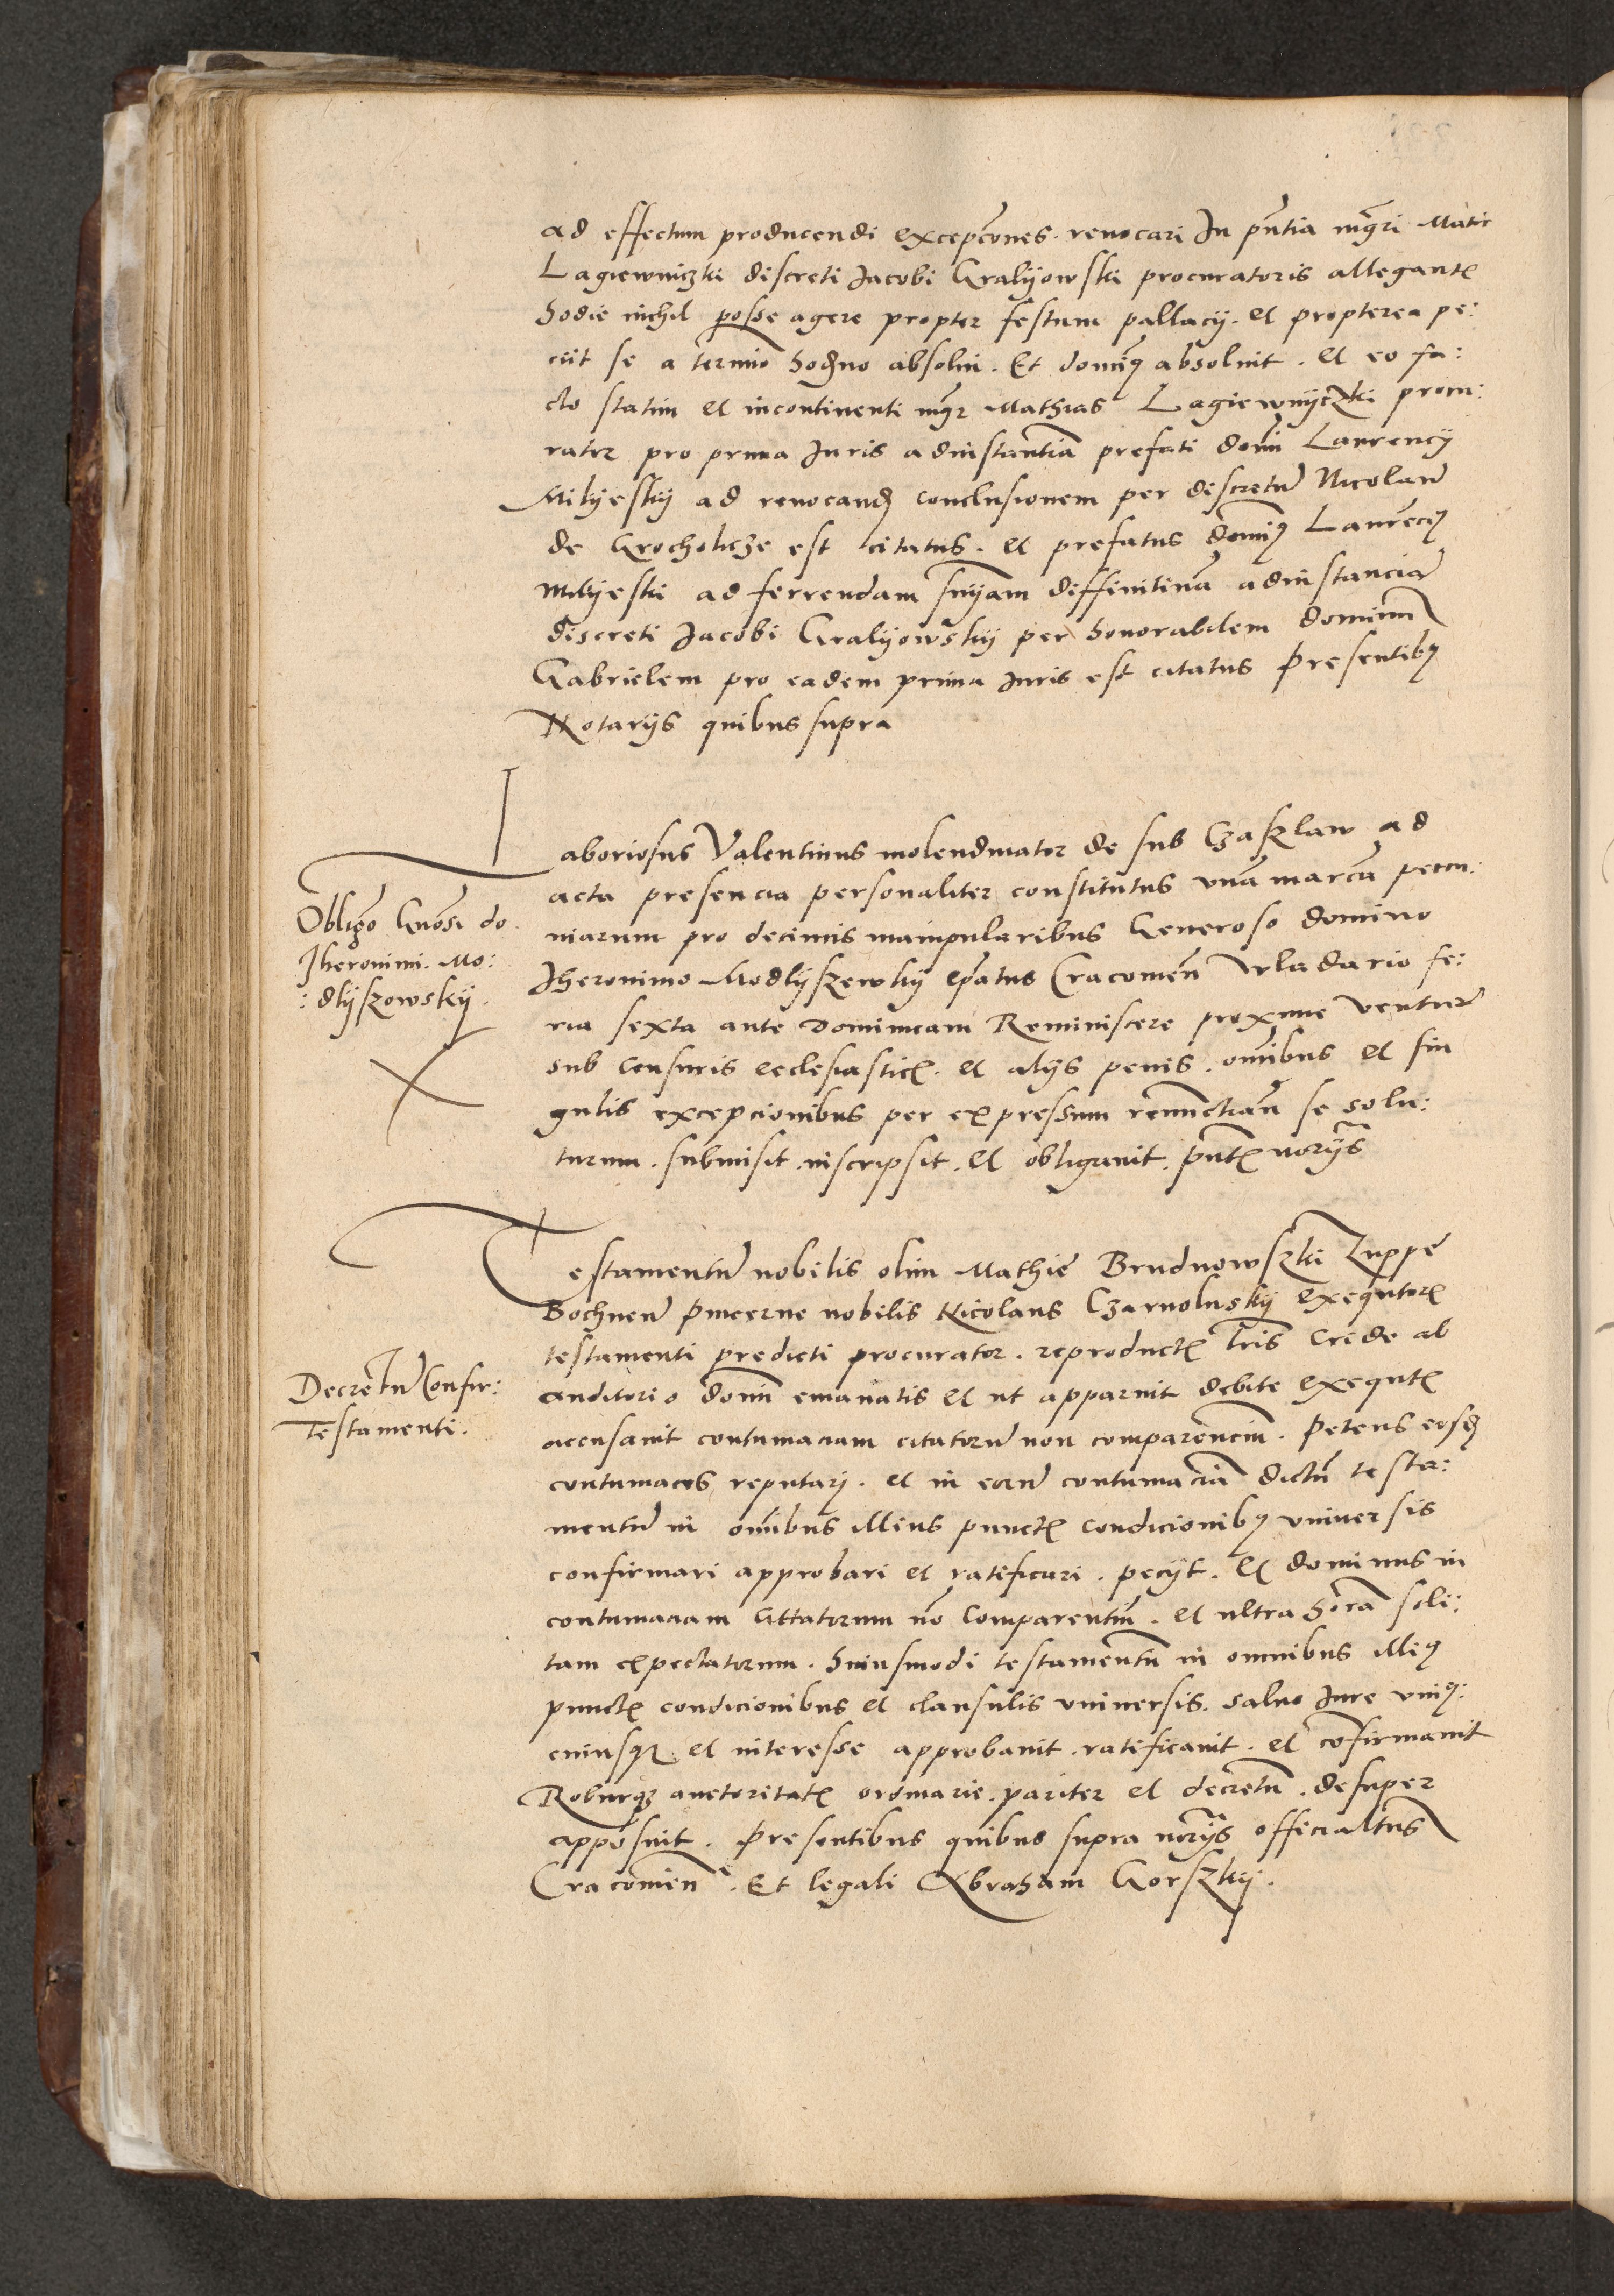 ad effectum producendi excepcōnes. renocari In pn̄tia mgri Matie
Lagiewniczki discreti Jacobi Gralyowski procuratoris allegantꝭ
hodie nichil posse agere propter festum pallacij. et propterea pe:
ciit se a termīo hodiīno absolui. Et dominꝰ absoluit. et eo fa:
cto statim et incontinenti mgr Mathias Lagiewnyczki procu:
rator pro prima Iuris ad instantiā prefati domī Laurencij
Milyeskij ad reuocandꝭ conclusionem per discretū Nicolaū
de Grocholicze est citatus. et prefatus domīꝰ Laurēciꝰ
Milyeski ad ferrendam sn̄iam diffinitiuā ad instanciā
discreti Jacobi Gralyowskij per honorabilem dominū
Gabrielem pro eadem prima Iuris est citatus Presentibꝰ
Notarijs quibus supra
Laboriosus Valentinus molendinator de sub Czaszlaw ad
acta presencia personaliter constitutus vnā marcā peccu:
niarum pro decimis manipularibus Generoso domino
Jheronimo Modlyszewskij ep̄atus Cracouien̄ Wladario fe:
ria sexta ante dominicam Reminiscere proxime ventur̄
sub censuris ecclesiasticꝭ. et alijs penis. om̄ibus et sin
gulis excepcionibus per expressum renunctian̄ se solu:
turum. submisit. inscripsit. et obligauit. pn̄tꝭ norijs
Obligō Gn̄osi do.
Jheronimi. Mo:
:dlyszowskij.
Testamentū nobilis olim Mathie Brudnowszki Zuppe
Bochnen̄ Pincerne nobilis Nicolaus Czarnoluskij exequtorꝭ
testamenti predicti procurator. reproductꝭ lr̄is Cride ab
auditorio domī emanatis et ut apparuit debite exequtꝭ
accusauit contumaciam citatorū non comparenciū. Petens eosdꝭ
contumaces reputarj. et in eorū contumaciā dictū testa:
mentū in om̄ibus illius punctꝭ condicionibꝰ vniuersis
confirmari approbari et ratificari. peciit. Et dominus in
contumaciam Cittatorum nō comparentiū. et ultra horā soli:
tam expectatorum. huiusmodi testamentū in omnibus illiꝰ
punctꝭ condicionibus et clausulis vniuersis. saluo Iure vniꝰ:
cuiusqꝫ et interesse approbauit. ratificauit. et cōfirmauit
Roburqꝫ auctoritatꝭ ordinarie. pariter et decretū. desuper
apposuit. Presentibus quibus supra norijs officialtus
Cracouien̄. Et legali Abraham Gorszkij.
Decretū Confir:
Testamenti.